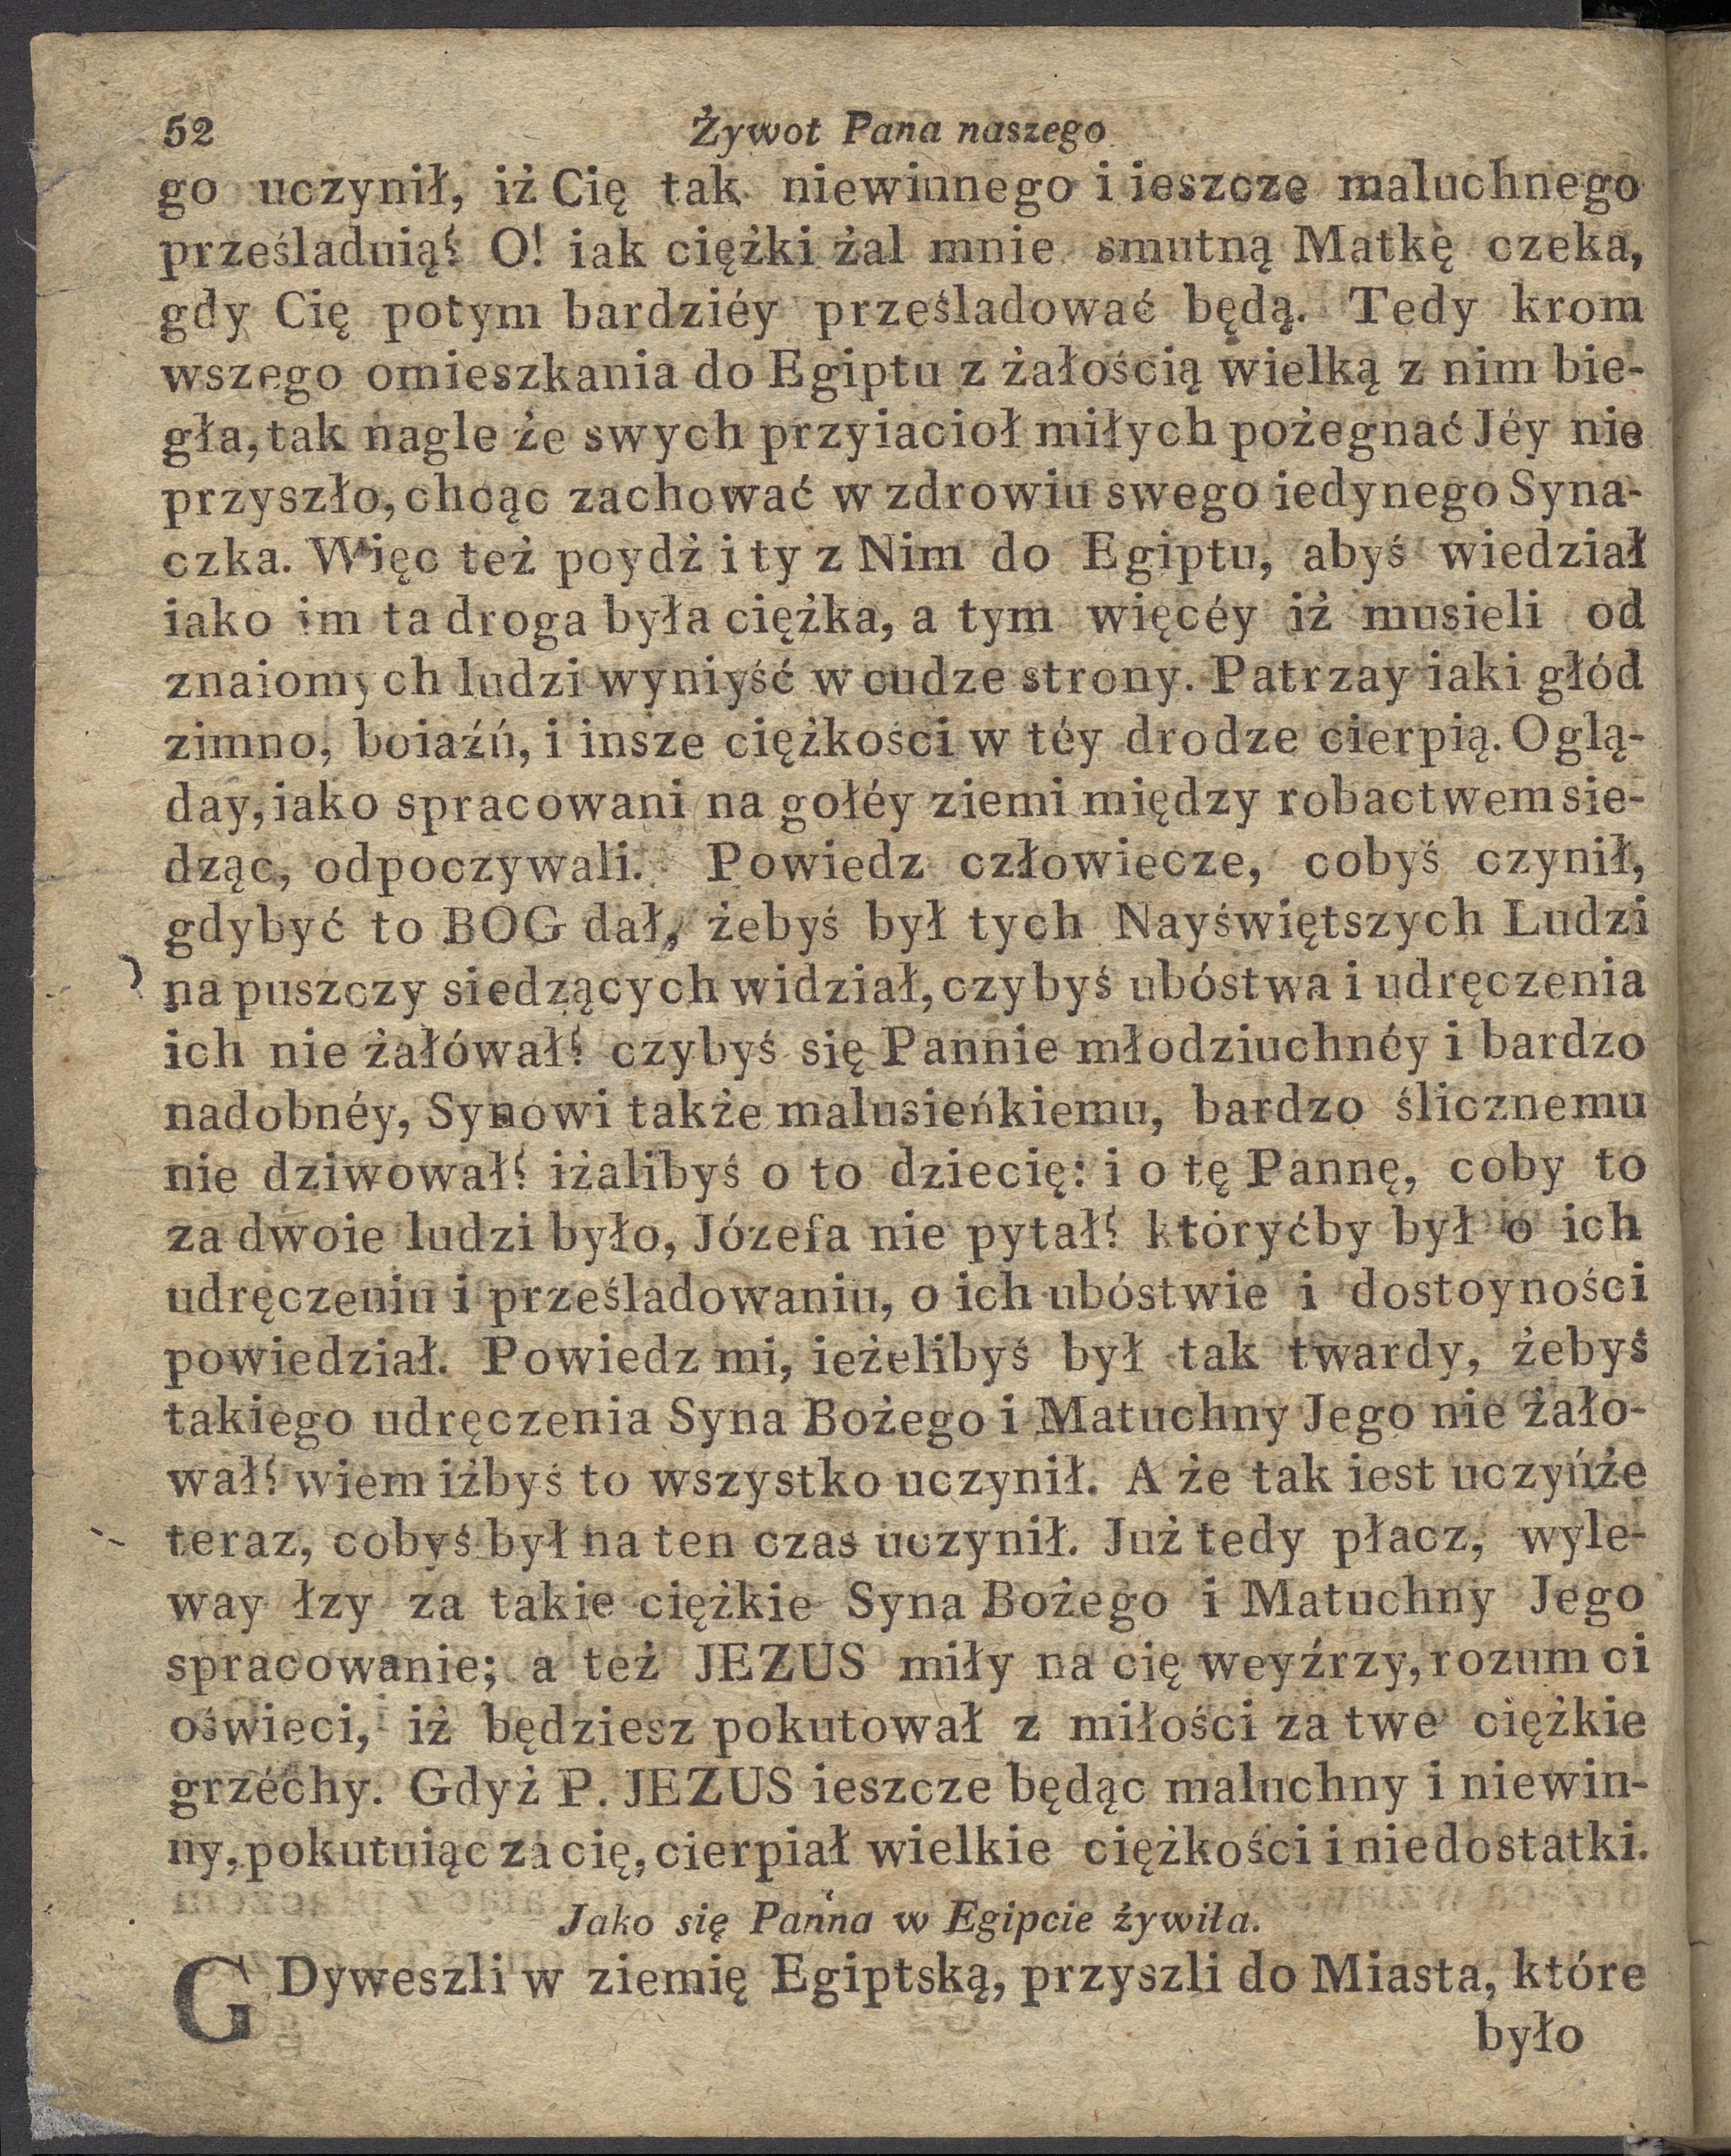 52 Żywot Pana naszego
go uczynił, iż Cię tak niewinnego i ieszcze maluchnego
prześladuią? O! iak ciężki żal mnie smutną Matkę czeka,
gdy Cię potym bardziéy prześladować będą. Tedy krom
wszego omieszkania do Egiptu z żałością wielką z nim bie-
gła, tak nagle że swych przyiacioł miłych pożegnać Jéy nie
przyszło, chcąc zachować w zdrowiu swego iedynego Syna-
czka. Więc też poydź i ty z Nim do Egiptu, abyś wiedział
iako im ta droga była ciężka, a tym więcéy iż musieli od
znaiomych ludzi wyniyść w cudze strony. Patrzay iaki głód
zimno, boiaźń, i insze ciężkości w téy drodze cierpią. Oglą-
day, iako spracowani na gołéy ziemi między robactwem sie-
dząc, odpoczywali. Powiedz człowiecze, cobyś czynił,
gdybyć to BOG dał, żebyś był tych Nayświętszych Ludzi
na puszczy siedzących widział, czybyś ubóstwa i udręczenia
ich nie żałówał? czybyś się Pannie młodziuchnéy i bardzo
nadobnéy, Synowi także malusieńkiemu, bardzo ślicznemu
nie dziwował? iżalibyś o to dziecię: i o tę Pannę, coby to
za dwoie ludzi było, Józefa nie pytał? któryćby był o ich
udręczeniu i prześladowaniu, o ich ubóstwie i dostoyności
powiedział. Powiedz mi, ieżelibyś był tak twardy, żebyś
takiego udręczenia Syna Bożego i Matuchny Jego nie żało-
wał? wiem iżbyś to wszystko uczynił. A że tak iest uczyńże
teraz, cobyś był na ten czas uczynił. Już tedy płacz, wyle-
way łzy za takie ciężkie Syna Bożego i Matuchny Jego
spracowanie; a też JEZUS miły na cię weyźrzy, rozum ci
oświeci, iż będziesz pokutował z miłości za twe ciężkie
grzéchy. Gdyż P. JEZUS ieszcze będąc maluchny i niewin-
ny, pokutuiąc za cię, cierpiał wielkie ciężkości i niedostatki.
Jako się Panna w Egipcie żywiła.
GDyweszli w ziemię Egiptską, przyszli do Miasta, które
było